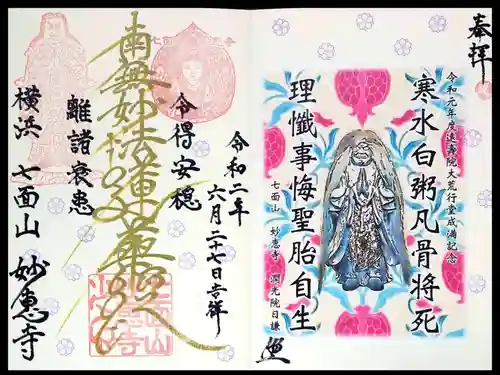 奉拝
令和元年度遠壽院大荒行堂成満記念
寒水白粥凡骨将死
理懺事悔聖胎自生
七面山 妙恵寺 潤光院日謙
令和二年
六月二十七日吉祥
令得安穏
南無妙法蓮華経
離諸衰患
横浜 七面山 妙恵寺